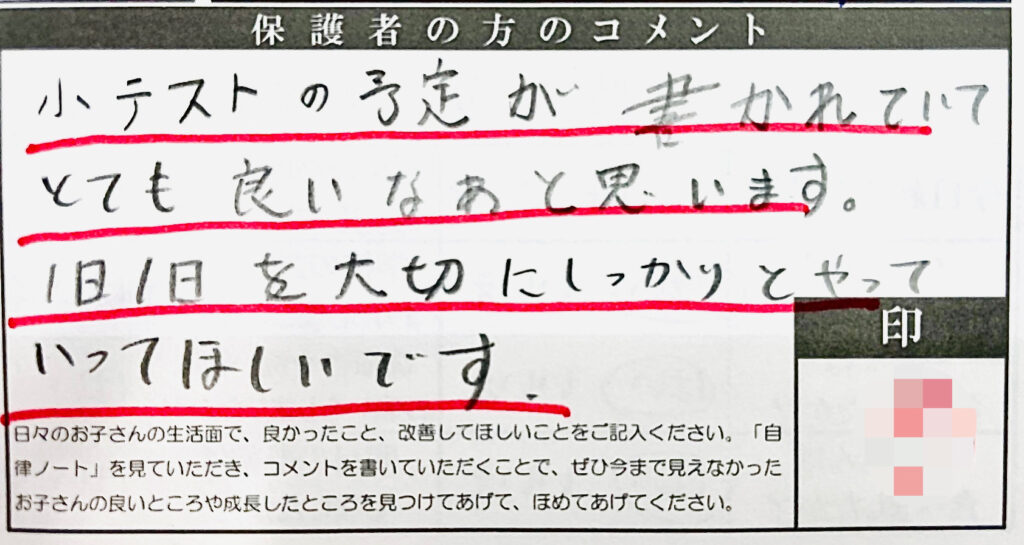 保護者の方のコメント
小テストの予定が書かれていて
とても良いなあと思います。
1日1日を大切にしっかりとやって
いってほしいです.
印
日々のお子さんの生活面で、良かったこと、改善してほしいことをご記入ください。「自
律ノート」を見ていただき、コメントを書いていただくことで、ぜひ今まで見えなかった
お子さんの良いところや成長したところを見つけてあげて、ほめてあげてください。